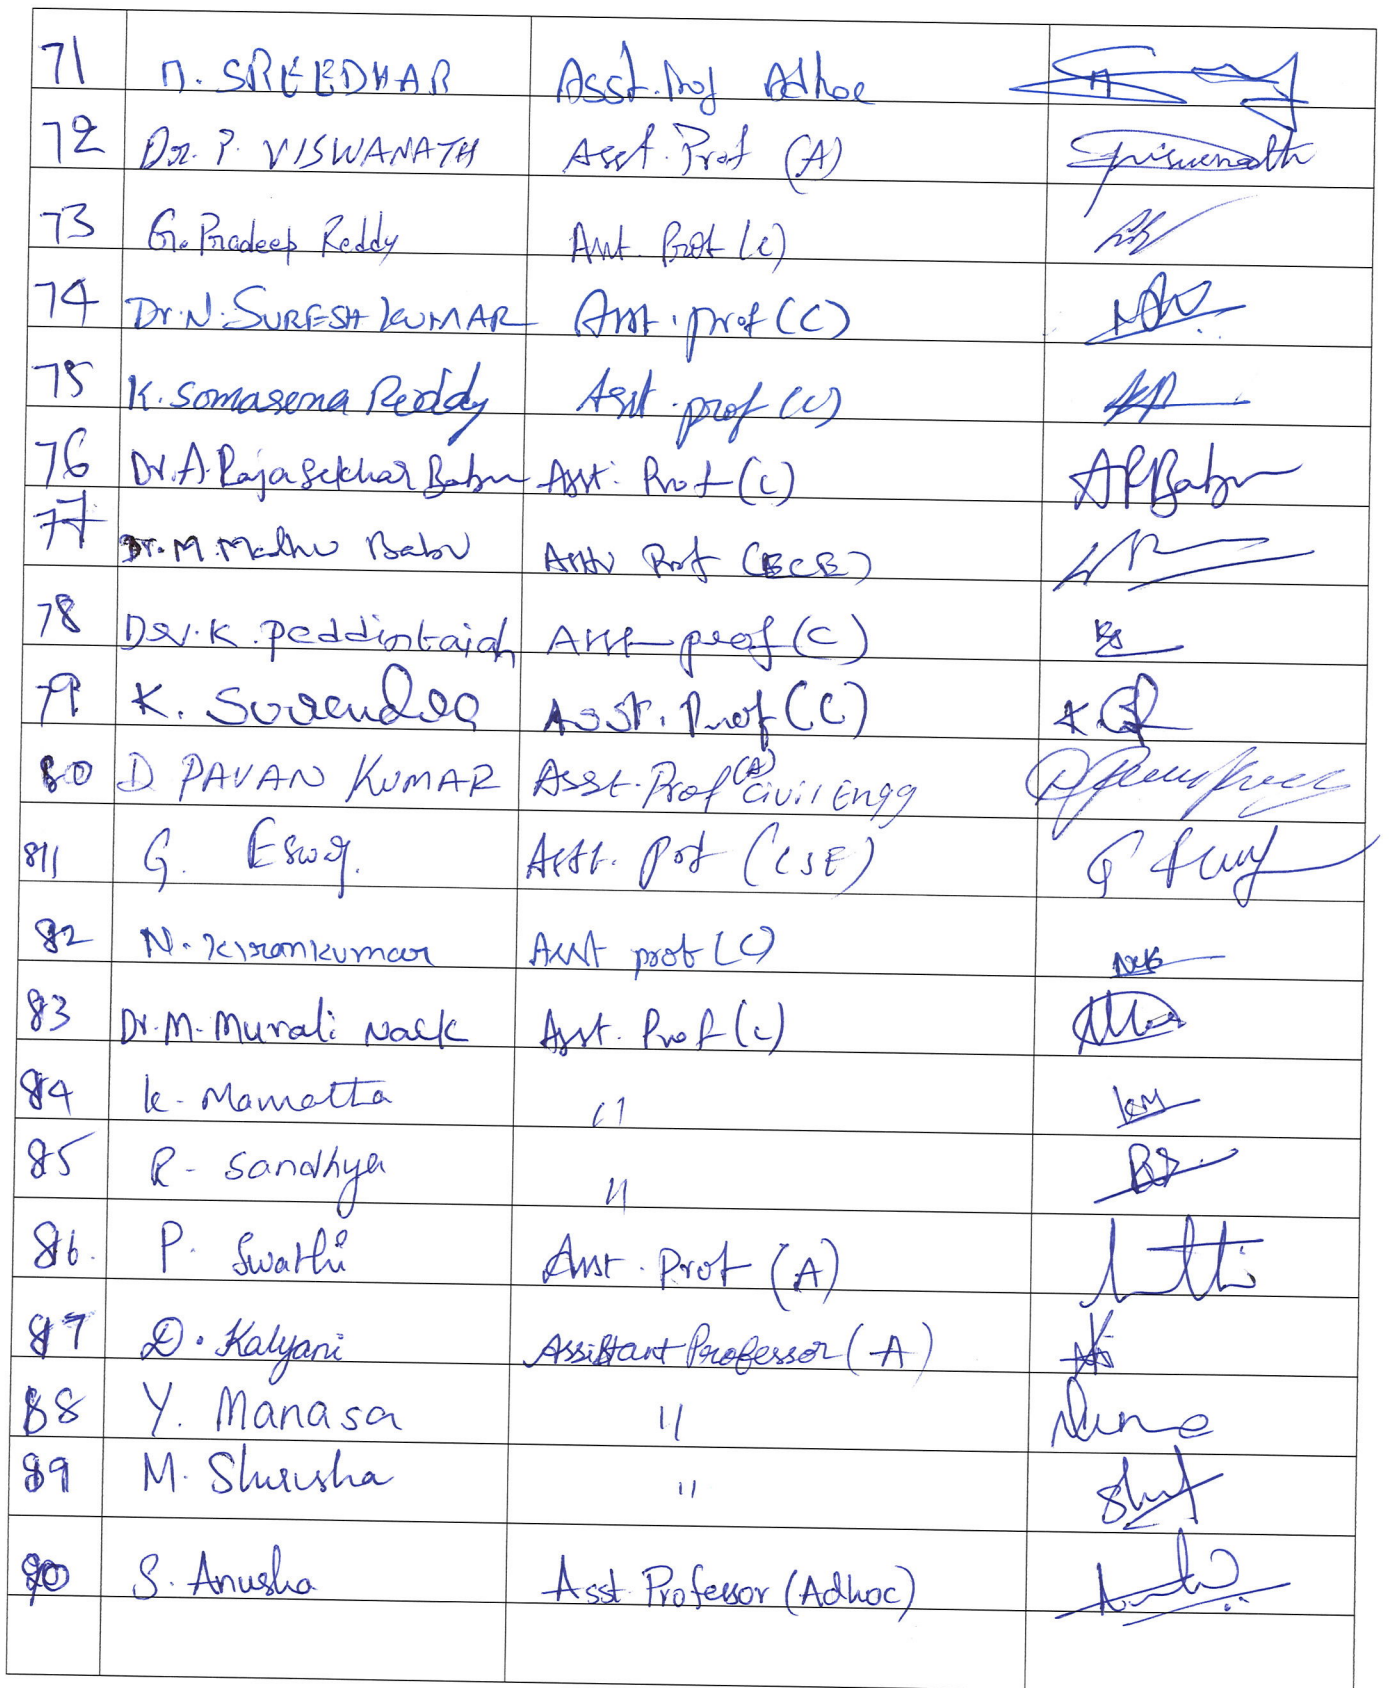 71 n. SREEDHAR Asst. Prof Adhoc
72 Dr. P. VISWANATH Asst. Prof (A) Pviswanath
73 G. Pradeep Reddy Asst. Prof (C)
74 Dr. N. SURESH KUMAR Asst. prof (C)
75 K. Somasena Reddy Asst. prof (C)
76 Dr. A. Rajasekhar Babu Asst. Prof (C) ARBabu
77 Dr. M. Madhu Babu Asst Prof (ECE)
78 Dr. K. peddintaiah Asst prof (C)
79 K. Surendra Asst. Prof (C)
80 D PAVAN KUMAR Asst. Prof (A) Civil Engg
81 G. Eswar. Asst. Prof (CSE)
82 N. Kirankumar Asst prof (C)
83 Dr. M. Murali Naik Asst. Prof (C)
84 K. Mamatta 11 KM
85 R. Sandhya 11
86. P. Swathi Asst. Prof (A)
87 D. Kalyani Assistant Professor (A)
88 Y. Manasa 11
89 M. Shirisha 11
90 S. Anusha Asst Professor (Adhoc)